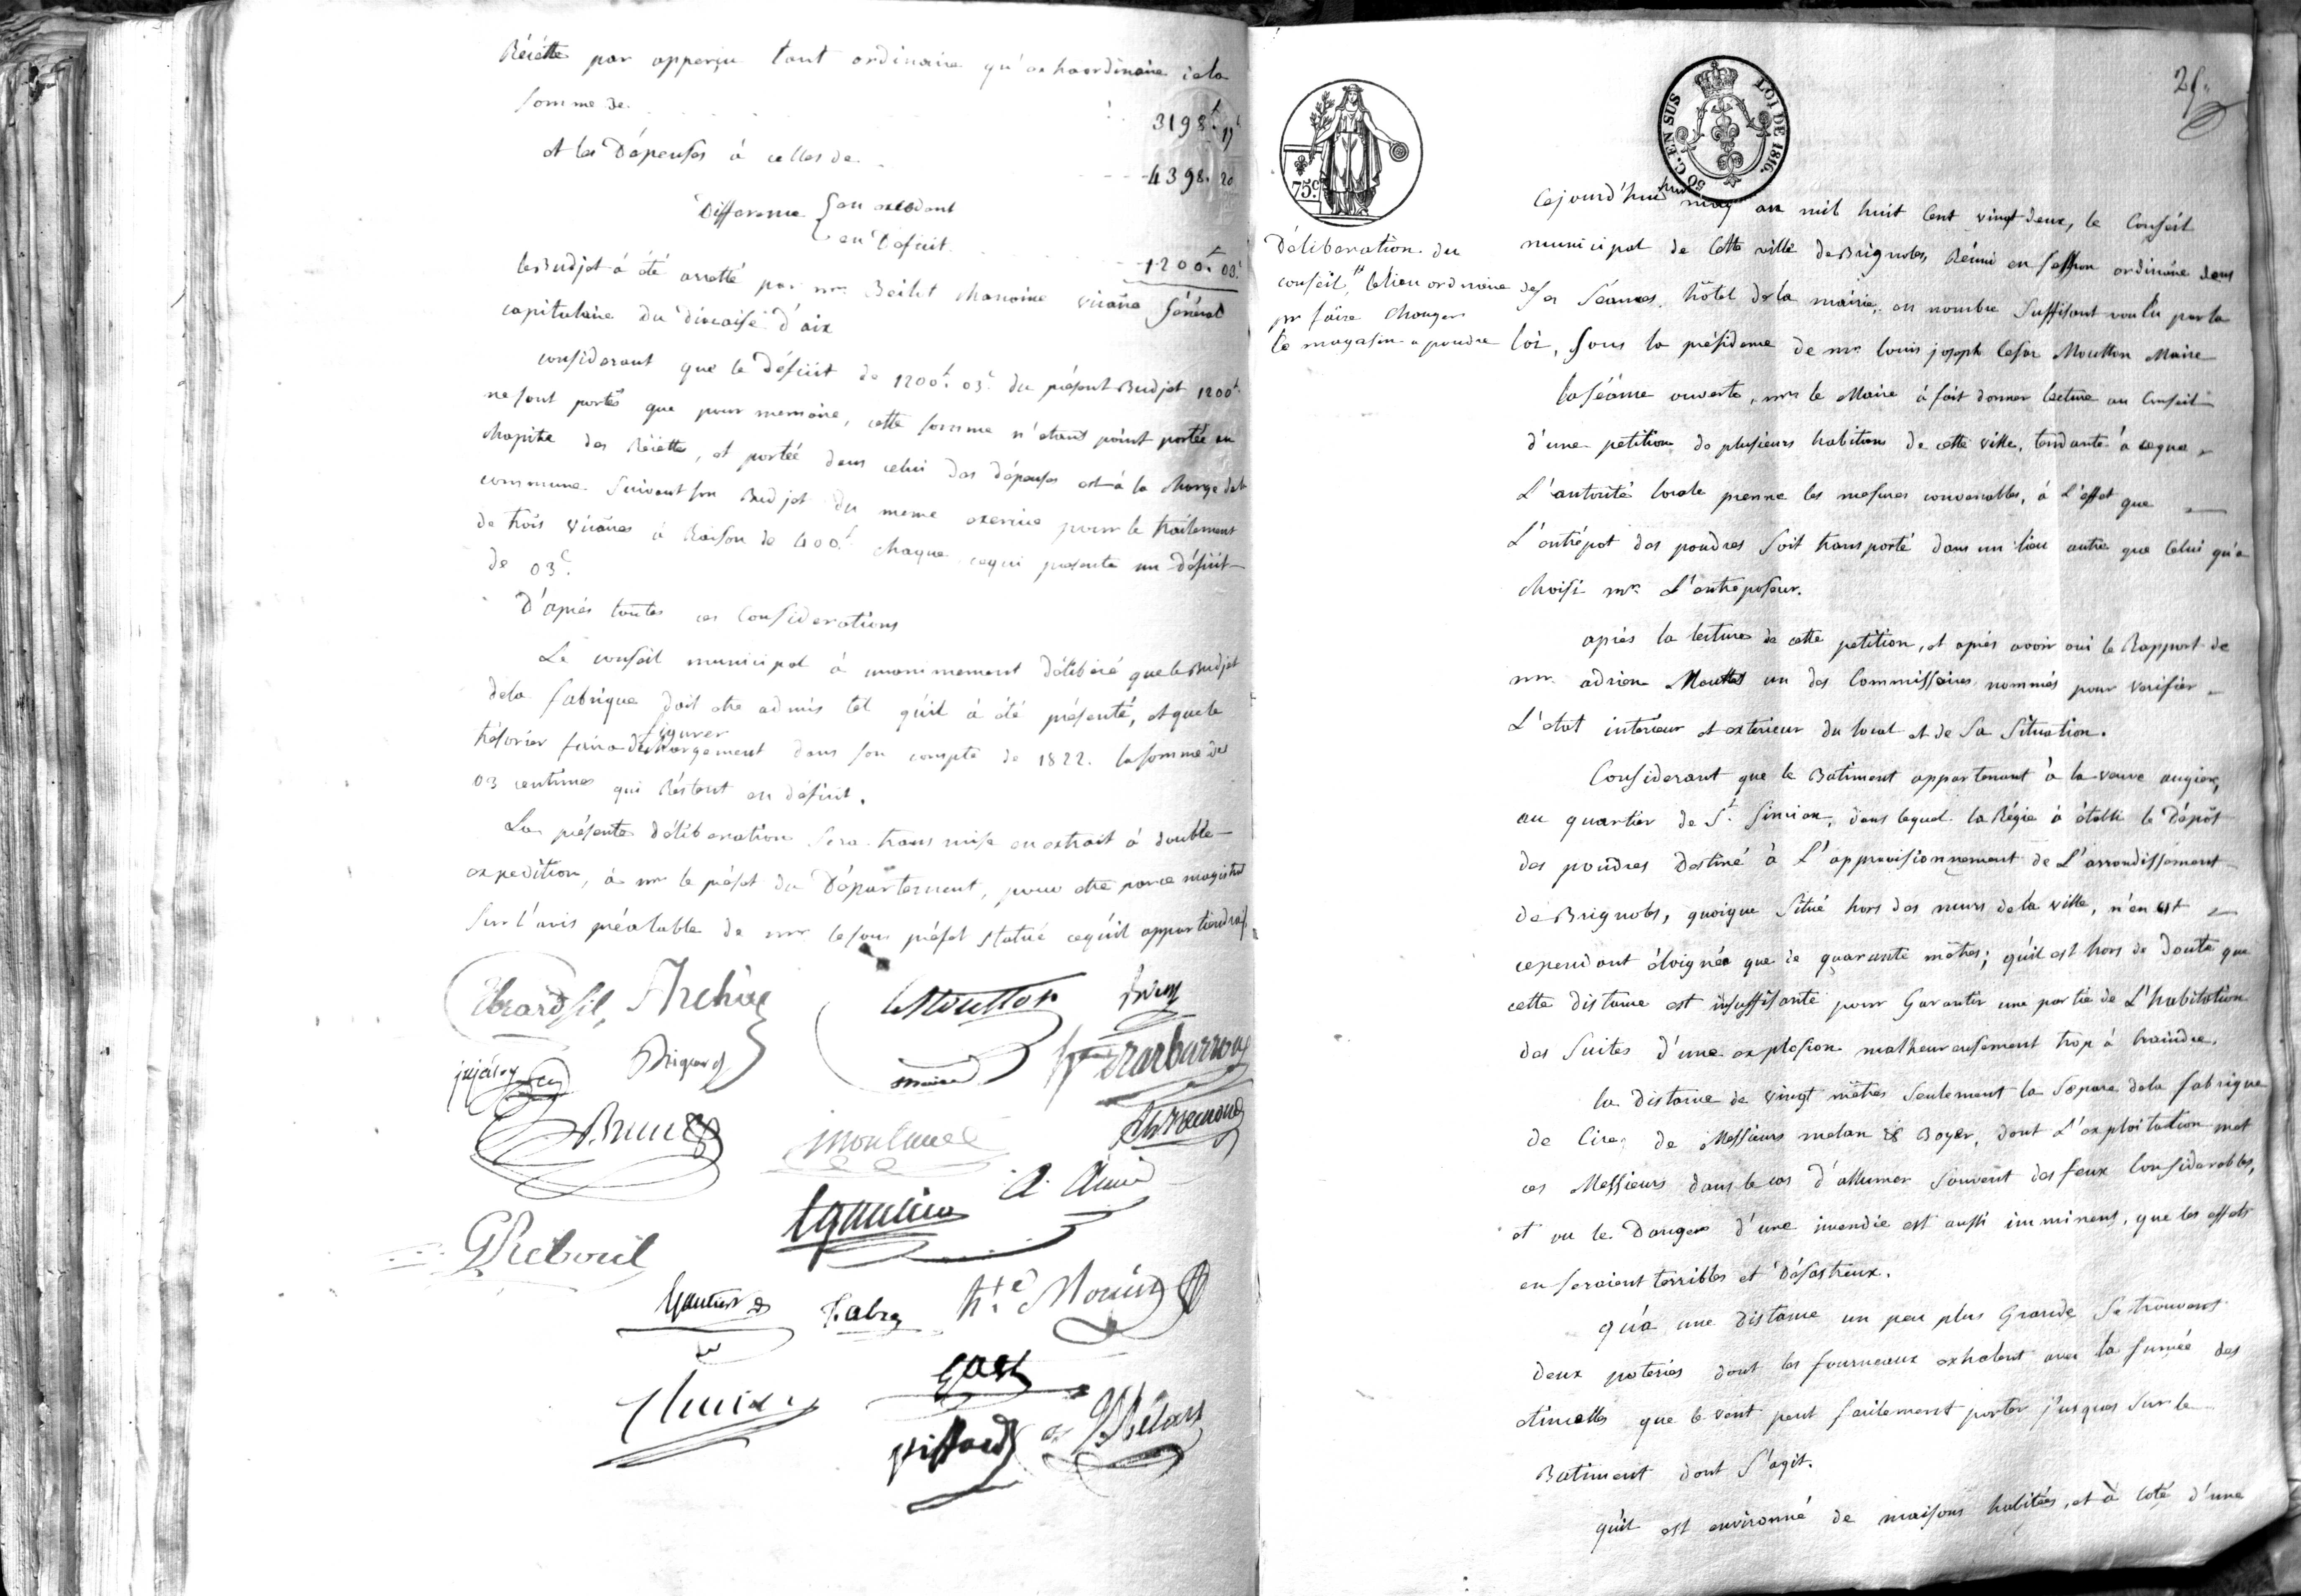 Récétte par apperçu tant ordinaire qu'extraordinaire à la
somme de.
3198f. 17c
et les Dépenses à celles de.
4398. 20
Différence { en excédant
en Déficit.
1200f. 03c
le Budjet à été arretté par mr. Beilet chanoine vicaire Général
capitulaire du diocaise d'aix
considerant que le Déficit de 1200f. 03c. du présent Budjet 1200f.
ne sont portés que pour memoire, cette somme n'étant point portée au
chapitre des Récétte, et portée dans celui des dépenses est à la charge de la
commune. Suivant son Budjet du meme exercice pour le traitement
de trois vicaires à Raison de 400f. chaque ce qui présente un déficit
de 03c.
D'après toutes ces Considerations
Le conseil municipal à unanimement délibéré que le Budjet
de la fabrique doit etre admis tel qu'il à été présenté, et que le
figurer
trésorier faira dans son compte de 1822. la somme des
03 centimes qui Réstent en déficit.
La présente délibération sera transmise en extrait à double
expedition, à mr le préfet du Département, pour etre par ce magistrat
sur l'avis préalable de mr le sous préfet statué ce qu'il appartiendra.
Moutton
maire
Barbarroux
GReboul
Gautier
Fabre
gast
piffard
LOI DE 1816.
50 C. EN SUS
75c.
25.
Déliberation du
conseil,
pr faire changer
le magasin a poudre
Cejourd'hui huit may an mil huit Cent vingt deux, le Conseil
municipal de Cette ville de Brignoles, Réuni en session ordinaire dans
le lieu ordinaire de ses Séances, hôtel de la mairie, en nombre Suffisant voulu par la
loi, Sous la présidence de mr. louis joseph Cesar Moutton Maire
la séance ouverte, mr le Maire à fait donner lecture au Conseil
d'une petition de plusieurs habitans de cette ville, tendante à ceque
L'autorité locale prenne les mesures convenables, à L'effet que
L'entrépot des poudres soit transporté dans un lieu autre que Celui qu'a
choisi mr. L'entreposeur.
après la lecture de cette petition, et après avoir oui le Rapport de
mr. adrien Mouttet un des Commissaires nommés pour verifier
L'etat intérieur et extérieur du local et de Sa Situation.
Considerant que le Batiment appartenant à la veuve augier,
au quartier de St. Simian, dans lequel la Régie à établi le Dépôt
des poudres destiné à L'approvisionnement de L'arrondissement
de Brignoles, quoique Situé hors des murs de la ville, n'en est
cependant éloignée que de quarante mètres; qu'il est hors de Doute que
cette distance est insuffisante pour Garantir une partie de L'habitation
des Suites d'une explosion malheureusement trop à Craindre.
la Distance de vingt mètres Seulement la Sépare de la fabrique
de Cire de Messieurs melan & Boyer, dont L'exploitation met
ces Messieurs dans le cas d'allumer Souvent des feux Considerables,
et ou le Danger d'une incendie est aussi imminent, que les effets
en seraient terribles et Désastreux.
qu'à une distance un peu plus Grande Se trouvent
deux poteries dont les fourneaux exhalent avec la fumée des
etincelles que le vent peut facilement porter jusques sur le
Batiment dont S'agit.
qu'il est environné de maisons habitées, et à Coté d'une